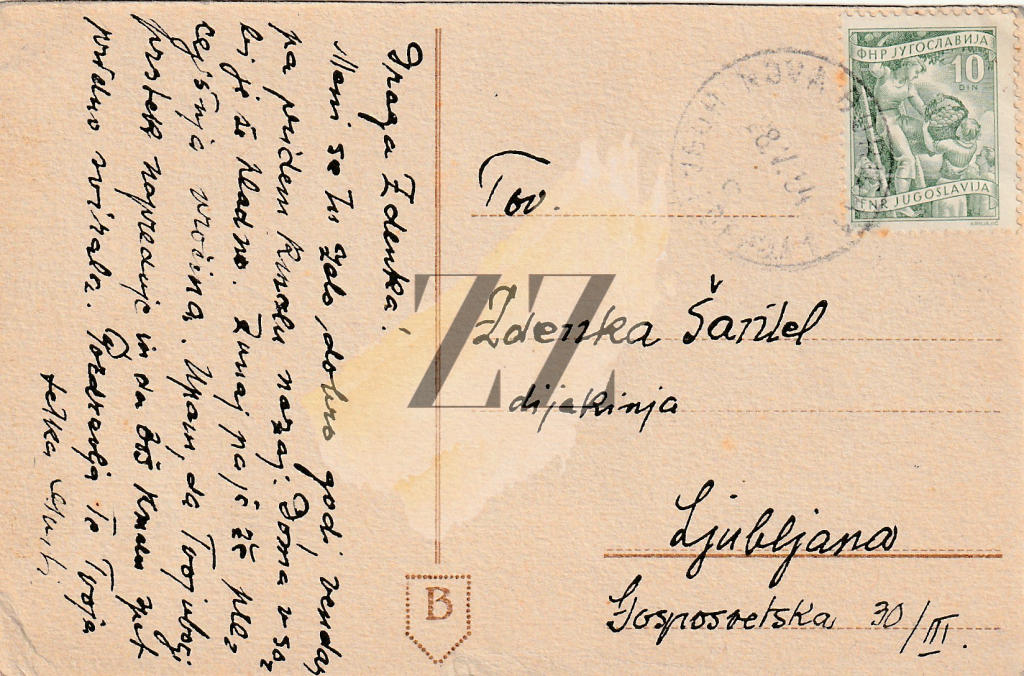 Draga Zdenka!
Meni se tu zelo dobro godi, vendar
pa pridem kmalu nazaj. Doma v so=
bi je še hladno. Zunaj pa je že pre=
cejšnja vročina. Upam, da Tvoj ubogi
prstek napreduje in da boš kmalu zpet
pridno svirala. Pozdravlja Te Tvoja
tetka
Tov.
Zdenka Šantel
dijakinja
Ljubljana
Gosposvetska 30/III.
ФНР ЈУГОСЛАВИЈА
10
DIN
FNR JUGOSLAVIJA
NOVA
B
ZZ